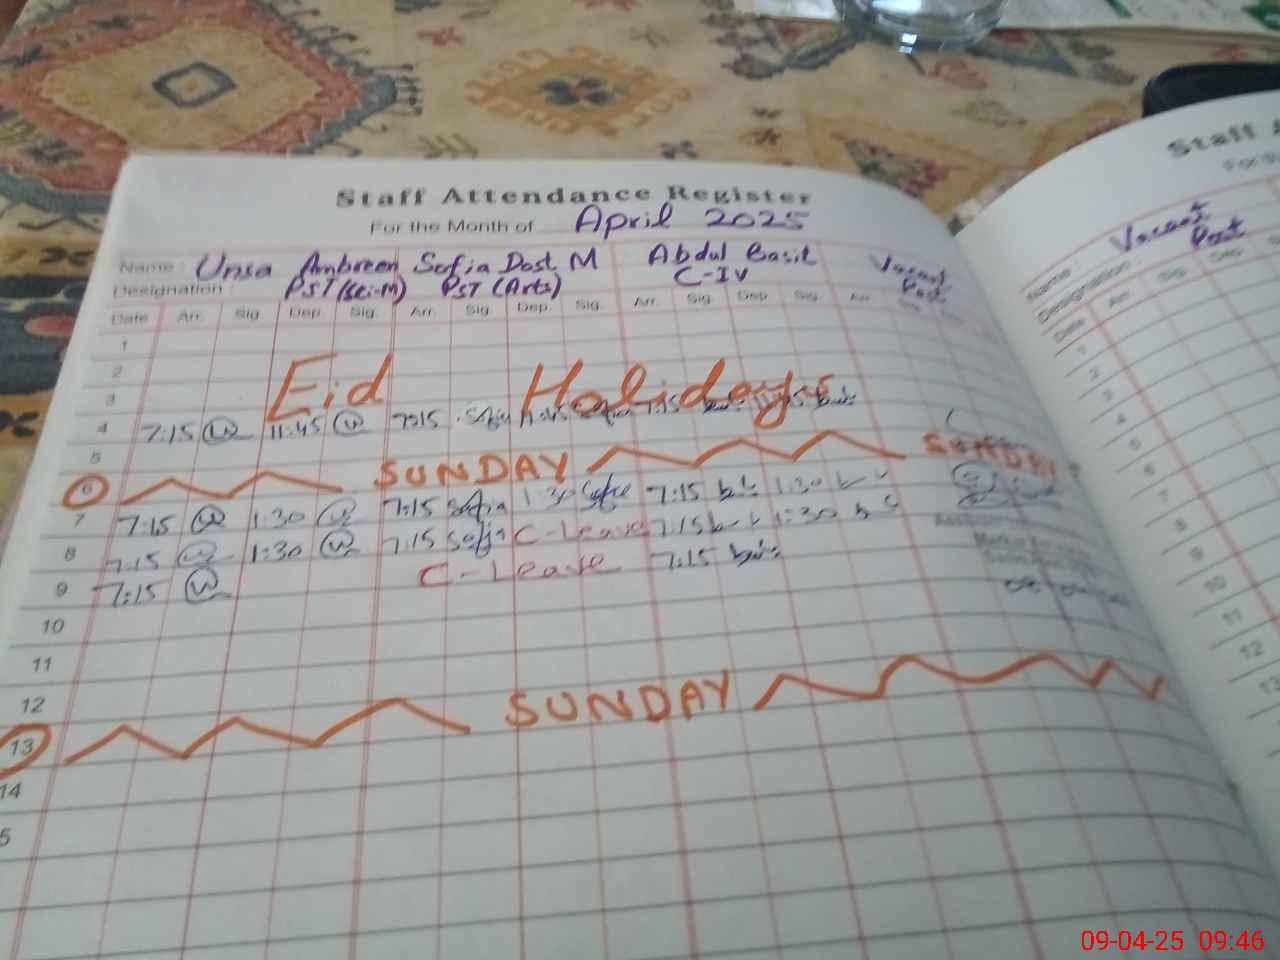 Staff Attendance Register
For the Month of April 2025
Name : Unsa Ambreen Sofia Dost M Abdul Basit Vacant Post
Designation PST (Sci-M) PST (Arts) C-IV
Date Arr. Sig. Dep. Sig. Arr. Sig. Dep. Sig. Arr. Sig. Dep. Sig. Arr.
1
2
Eid Holidays
3
4 7:15 11:45 7:15 Sofia 11:45 Sofia 7:15
5
6 SUNDAY SUNDAY
7 7:15 1:30 7:15 Sofia 1:30 Sofia 7:15 1:30
8 7:15 1:30 7:15 Sofia C-Leave 7:15 1:30
9 7:15 C-Leave 7:15
10
11
12
13 SUNDAY
14
5
Staff
Name : Vacant Post
Designation
Date Arr. Sig. Dep.
1
2
3
4
5
6
7
8
9
10
11
12
13
09-04-25 09:46